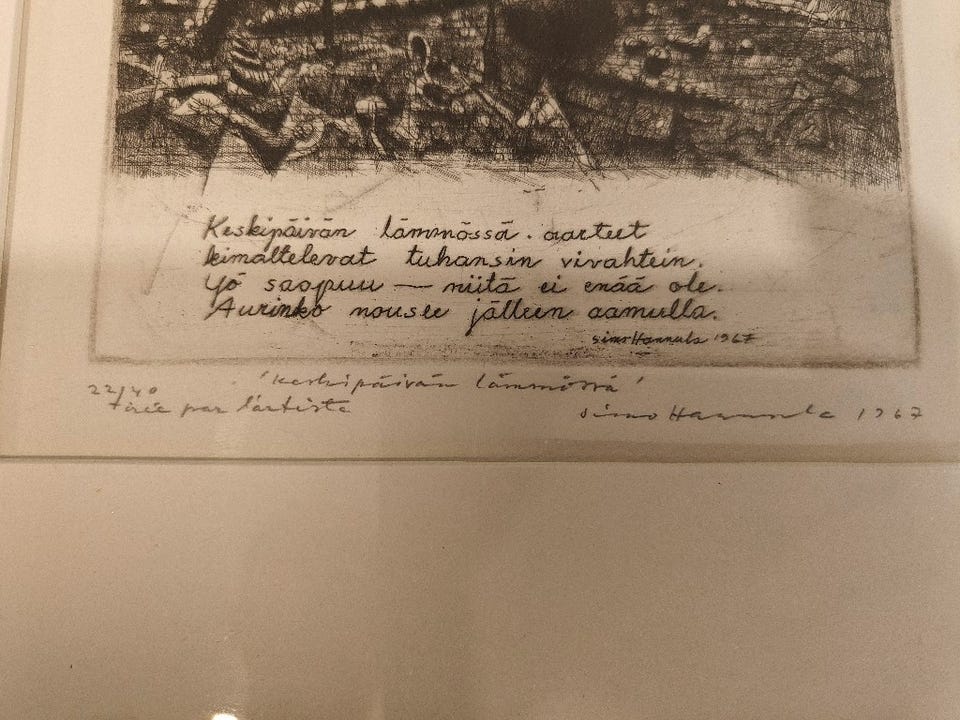 Keskipäivän lämmössä aarteet
kimaltelevat tuhansin vivahtein.
Yö saapuu — niitä ei enää ole.
Aurinko nousee jälleen aamulla.
Simo Hannula 1967
22/40 'Keskipäivän lämmössä'
tirée par l'artiste Simo Hannula 1967